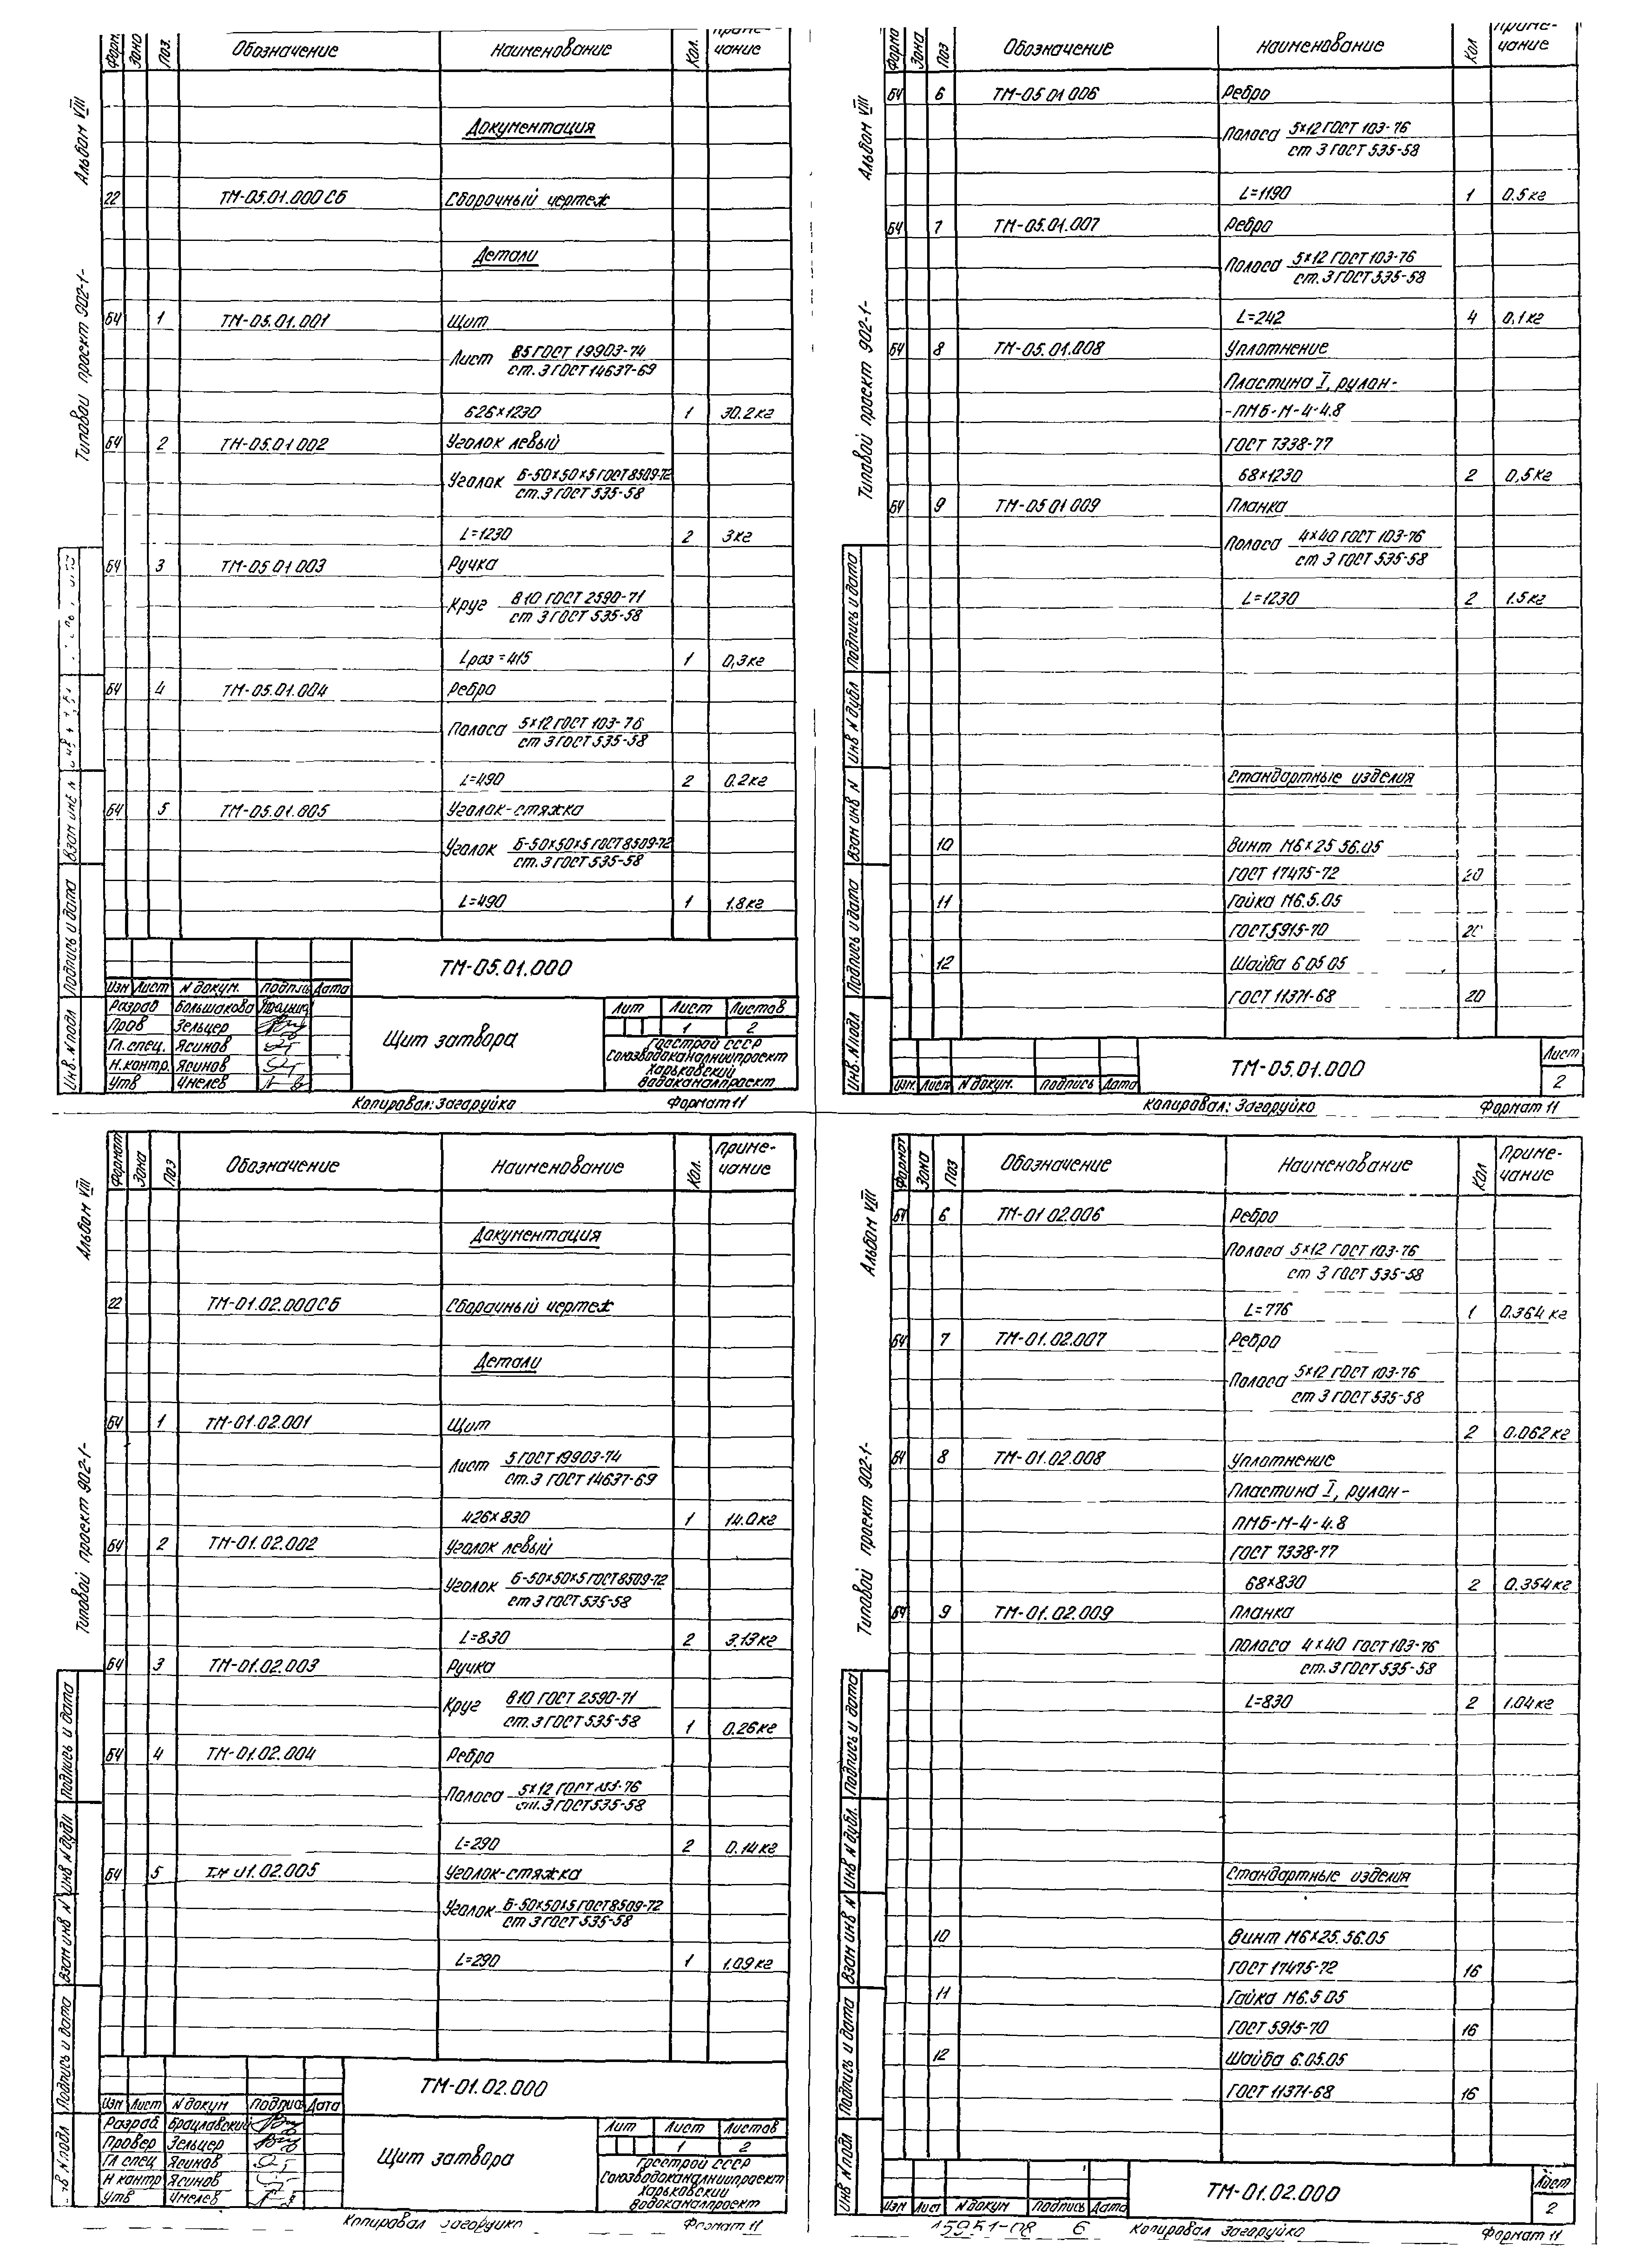 Альбом VIII
Типовой проект 902-1-
Форм. Зона Поз. Обозначение Наименование Кол. Приме-
чание
Документация
22 ТМ-05.01.000 СБ Сборочный чертеж
Детали
БЧ 1 ТМ-05.01.001 Щит
Лист В5 ГОСТ 19903-74
ст. 3 ГОСТ 14637-69
626×1230 1 30.2 кг
БЧ 2 ТМ-05.01 002 Уголок левый
Уголок Б-50×50×5 ГОСТ 8509-72
ст.3 ГОСТ 535-58
L=1230 2 3 кг
БЧ 3 ТМ-05 01 003 Ручка
Круг В10 ГОСТ 2590-71
ст 3 ГОСТ 535-58
Lраз =415 1 0,3 кг
БЧ 4 ТМ-05.01.004 Ребро
Полоса 5×12 ГОСТ 103-76
ст 3 ГОСТ 535-58
L=490 2 0.2 кг
БЧ 5 ТМ-05.01.005 Уголок-стяжка
Уголок Б-50×50×5 ГОСТ 8509-72
ст.3 ГОСТ 535-58
L=490 1 1.8 кг
ТМ-05.01.000
Изм Лист N докум. Подпись Дата
Разраб Большакова
Пров Зельцер
Гл.спец. Ясинов
Н.контр. Ясинов
Утв
Щит затвора
Лит Лист Листов
1 2
Госстрой СССР
Союзводоканалниипроект
Харьковский
Водоканалпроект
Взам инв N
Подпись и дата
Инв. N подл
Копировал: Загоруйко Формат 11
Альбом VIII
Типовой проект 902-1-
Форма Зона Поз Обозначение Наименование Кол Приме-
чание
БЧ 6 ТМ-05 01 006 Ребро
Полоса 5×12 ГОСТ 103-76
ст 3 ГОСТ 535-58
L=1190 1 0.5 кг
БЧ 7 ТМ-05.01.007 Ребро
Полоса 5×12 ГОСТ 103-76
ст. 3 ГОСТ 535-58
L=242 4 0,1 кг
БЧ 8 ТМ-05.01.008 Уплотнение
Пластина I, рулон-
-ПМБ-М-4-4.8
ГОСТ 7338-77
68×1230 2 0,5 кг
БЧ 9 ТМ-05 01 009 Планка
Полоса 4×40 ГОСТ 103-76
ст 3 ГОСТ 535-58
L=1230 2 1.5 кг
Стандартные изделия
10 Винт М6×25 56.05
ГОСТ 17475-72 20
11 Гайка М6.5.05
ГОСТ 5915-70 20
12 Шайба 6 05 05
ГОСТ 11371-68 20
Подпись и дата
Инв N дубл
Взам инв N
Подпись и дата
Инв. N подл
Изм. Лист N докум. Подпись Дата
ТМ-05.01.000
Лист
2
Копировал: Загоруйко Формат 11
Альбом VIII
Типовой проект 902-1-
Формат Зона Поз Обозначение Наименование Кол. Приме-
чание
Документация
22 ТМ-01.02.000 СБ Сборочный чертеж
Детали
БЧ 1 ТМ-01.02.001 Щит
Лист 5 ГОСТ 19903-74
ст.3 ГОСТ 14637-69
426×830 1 14.0 кг
БЧ 2 ТМ-01.02.002 Уголок левый
Уголок Б-50×50×5 ГОСТ 8509-72
ст 3 ГОСТ 535-58
L=830 2 3.13 кг
БЧ 3 ТМ-01.02.003 Ручка
Круг В10 ГОСТ 2590-71
ст.3 ГОСТ 535-58
1 0.26 кг
БЧ 4 ТМ-01.02.004 Ребро
Полоса 5×12 ГОСТ 103-76
ст.3 ГОСТ 535-58
L=290 2 0.14 кг
БЧ 5 ТМ 01.02.005 Уголок-стяжка
Уголок Б-50×50×5 ГОСТ 8509-72
ст 3 ГОСТ 535-58
L=290 1 1.09 кг
Подпись и дата
Инв N дубл
Взам инв N
Подпись и дата
N подл
ТМ-01.02.000
Изм Лист N докум Подпис Дата
Разраб. Брацлавский
Провер Зельцер
Гл спец Ясинов
Н контр Ясинов
Утв
Щит затвора
Лит Лист Листов
1 2
Госстрой СССР
Союзводоканалниипроект
Харьковский
Водоканалпроект
Копировал Загоруйко Формат 11
Альбом VIII
Типовой проект 902-1-
Формат Зона Поз Обозначение Наименование Кол Приме-
чание
БЧ 6 ТМ-01 02.006 Ребро
Полоса 5×12 ГОСТ 103-76
ст 3 ГОСТ 535-58
L=776 1 0.364 кг
БЧ 7 ТМ-01.02.007 Ребро
Полоса 5×12 ГОСТ 103-76
ст.3 ГОСТ 535-58
2 0.062 кг
БЧ 8 ТМ-01.02.008 Уплотнение
Пластина I, рулон-
ПМБ-М-4-4.8
ГОСТ 7338-77
68×830 2 0.354 кг
БЧ 9 ТМ-01.02.009 Планка
Полоса 4×40 ГОСТ 103-76
ст.3 ГОСТ 535-58
L=830 2 1.04 кг
Стандартные изделия
10 Винт М6×25.56.05
ГОСТ 17475-72 16
11 Гайка М6.5 05
ГОСТ 5915-70 16
12 Шайба 6.05.05
ГОСТ 11371-68 16
Подпись и дата
Инв N дубл.
Взам инв N
Подпись и дата
Инв N подл
Изм Лист N докум Подпись Дата
ТМ-01.02.000
Лист
2
15951-08 6 Копировал Загоруйко Формат 11